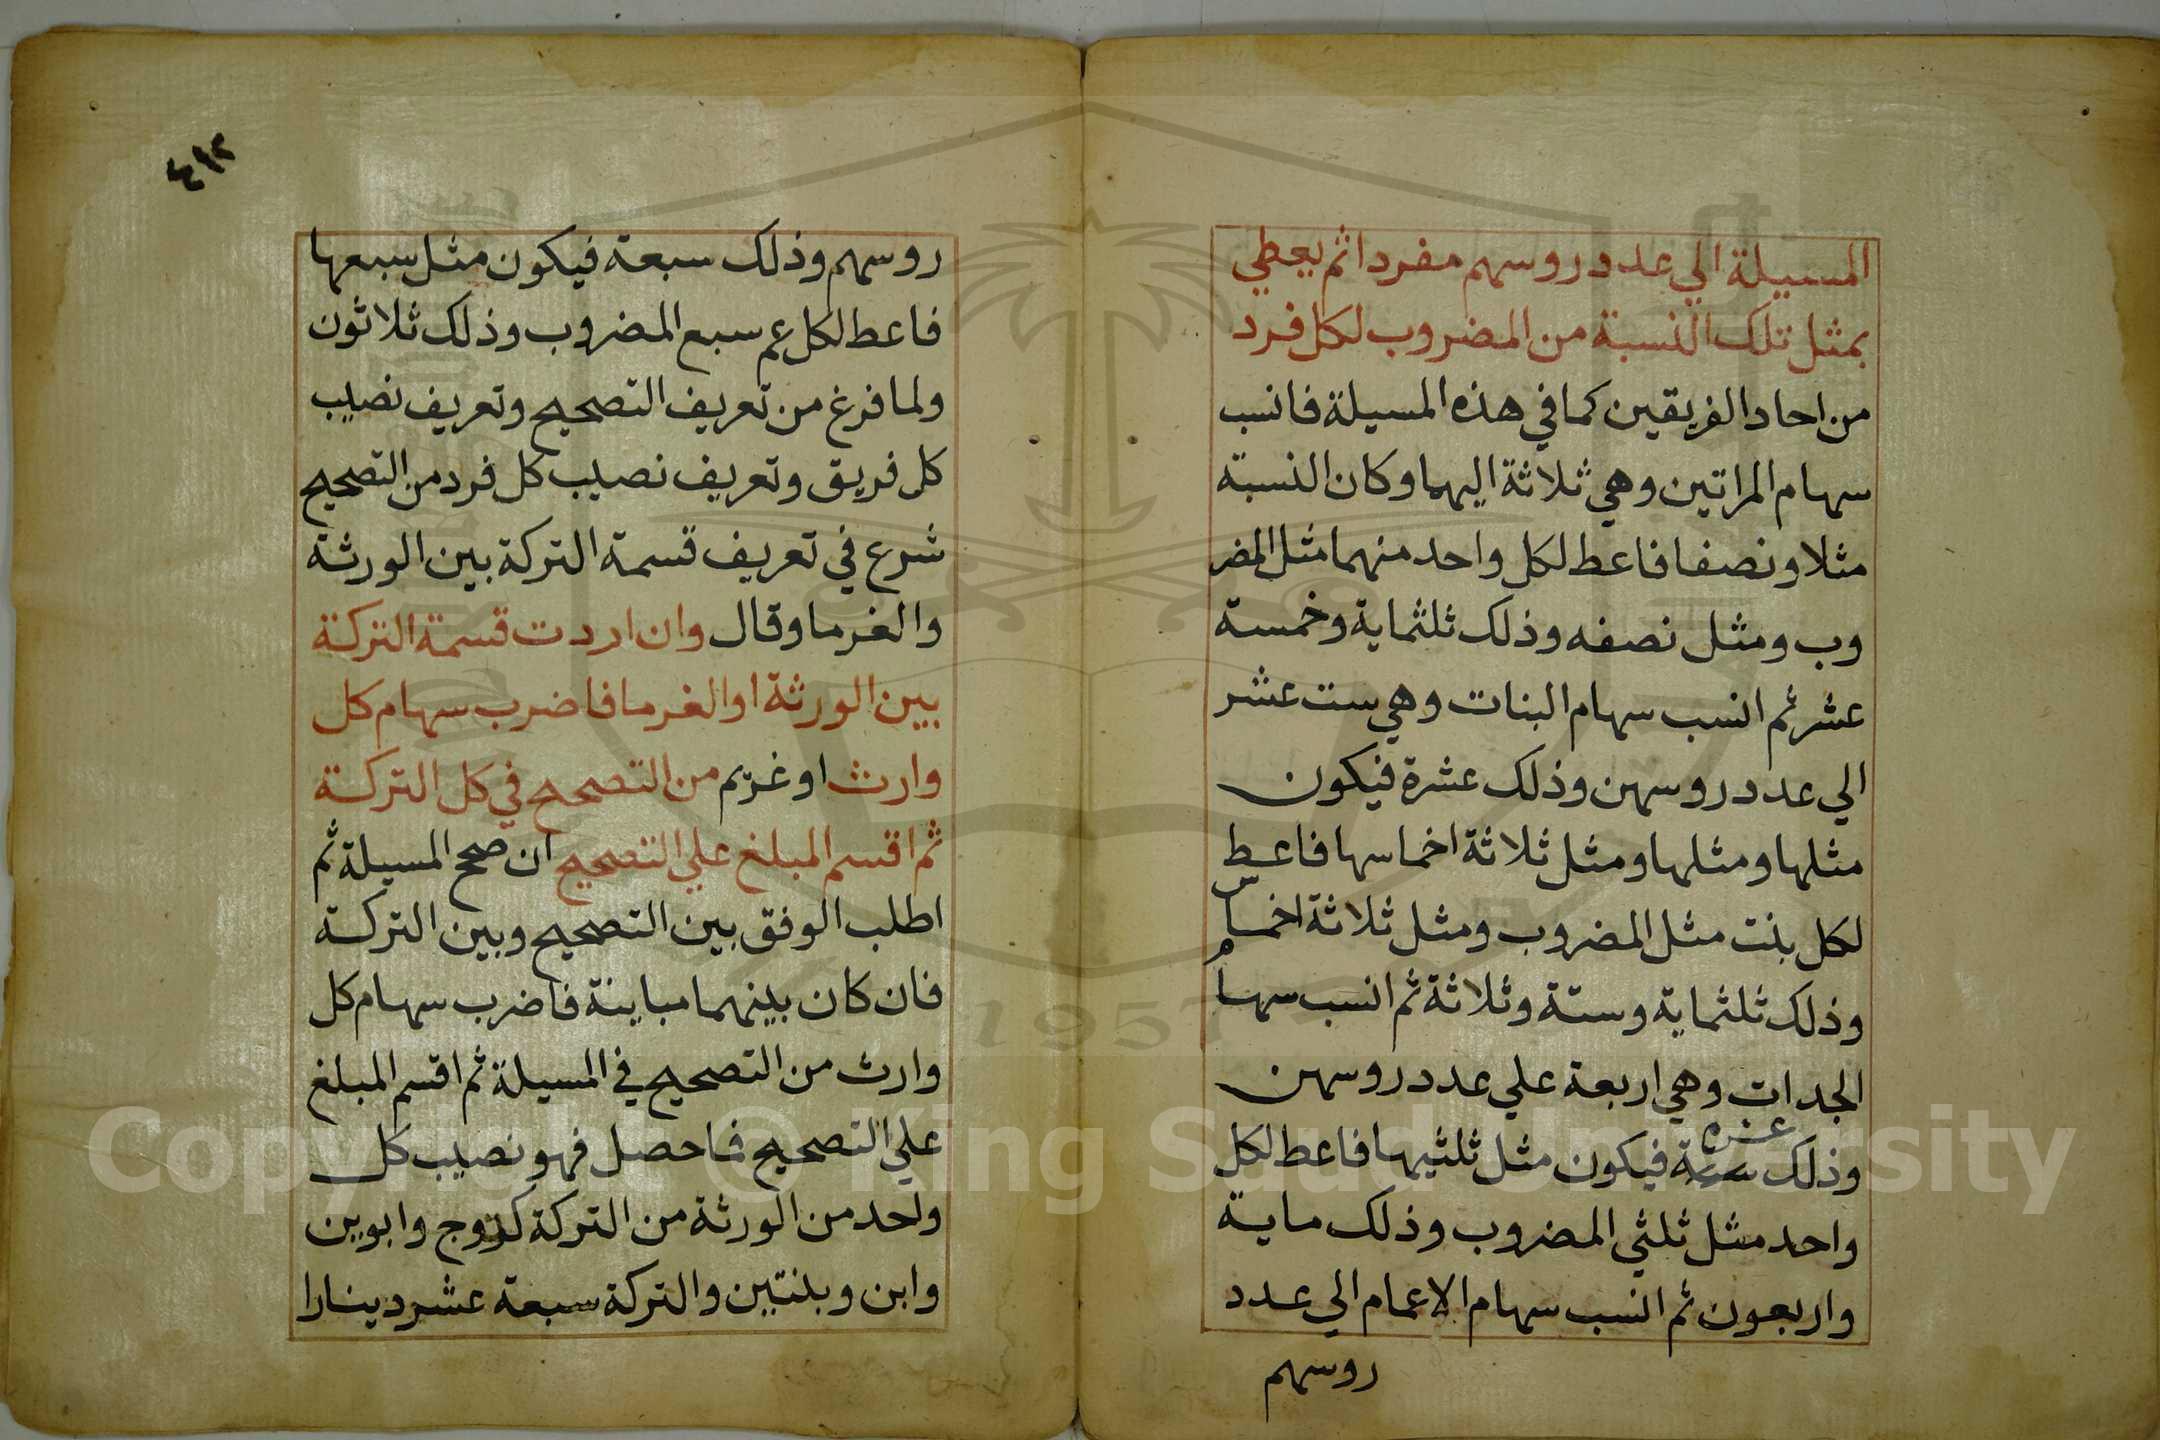 المسيلة الي عدد روسهم مفردا ثم يعطي
بمثل تلك النسبة من المضروب لكل فرد
من احاد الفريقين كما في هذه المسيلة فانسب
سهام المراتين وهي ثلاثة اليهما وكان النسبة
مثلا ونصفا فاعط لكل واحد منهما مثل المضر
وب ومثل نصفه وذلك ثلثماية وخمسة
عشر ثم انسب سهام البنات وهي ست عشر
الي عدد روسهن وذلك عشرة فيكون
مثلها ومثلها ومثل ثلاثة اخماسها فاعط
لكل بنت مثل المضروب ومثل ثلاثة اخماس
وذلك ثلثماية وستة وثلاثة ثم انسب سهام
الجدات وهي اربعة علي عدد روسهن
وذلك ستة فيكون مثل ثلثيها فاعط لكل
واحد مثل ثلثي المضروب وذلك ماية
واربعون ثم انسب سهام الاعمام الي عدد
روسهم
٤١٢
روسهم وذلك سبعة فيكون مثل سبعها
فاعط لكل عم سبع المضروب وذلك ثلاثون
ولما فرغ من تعريف التصحيح وتعريف نصيب
كل فريق وتعريف نصيب كل فرد من التصحيح
شرع في تعريف قسمة التركة بين الورثة
والغرما وقال وان اردت قسمة التركة
بين الورثة او الغرما فاضرب سهام كل
وارث او غريم من التصحيح في كل التركة
ثم اقسم المبلغ علي التصحيح ان صح المسيلة ثم
اطلب الوفق بين التصحيح وبين التركة
فان كان بينهما مباينة فاضرب سهام كل
وارث من التصحيح في المسيلة ثم اقسم المبلغ
علي التصحيح فما حصل فهو نصيب كل
واحد من الورثة من التركة كزوج وابوين
وابن وبنتين والتركة سبعة عشر دينارا
1957
Copyright © King Saud University